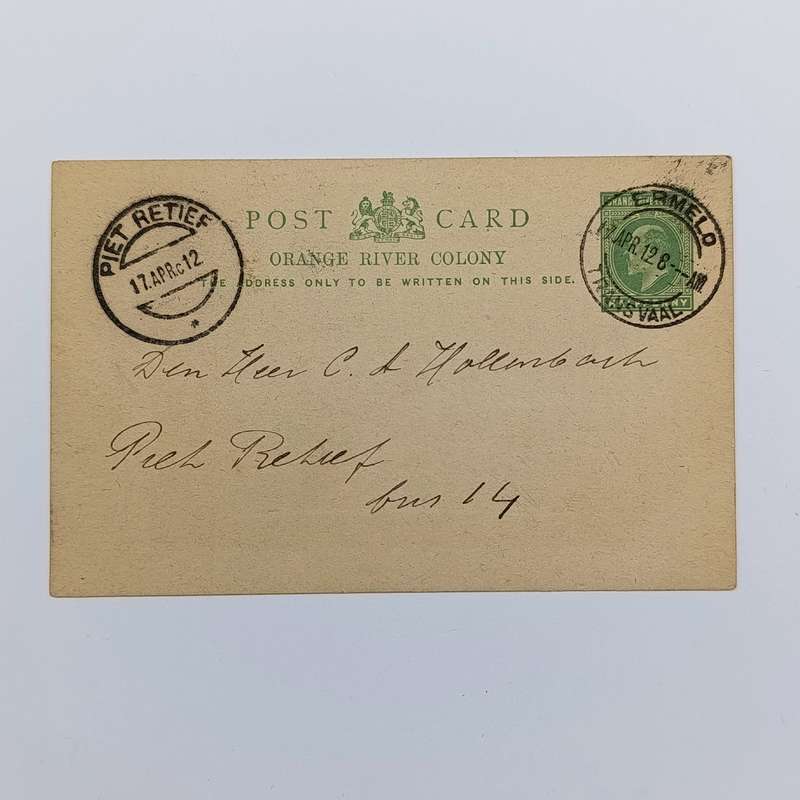 PIET RETIEF
17.APR.C12
*
POST CARD
ORANGE RIVER COLONY
THE ADDRESS ONLY TO BE WRITTEN ON THIS SIDE.
ERMELO
APR.12 8-- AM.
TRANSVAAL
Den Heer C. A Hollenbach
Piet Retief
bus 14